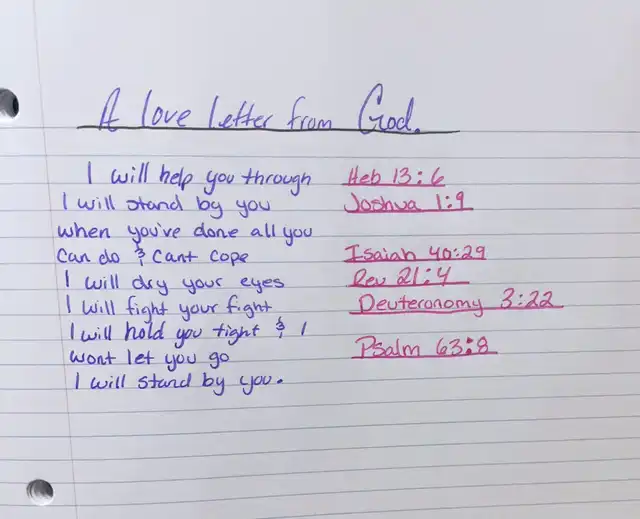 A love letter from God.
I will help you through Heb 13:6
I will stand by you Joshua 1:9
when you've done all you
can do & cant cope Isaiah 40:29
I will dry your eyes Rev 21:4
I will fight your fight Deuteronomy 3:22
I will hold you tight & I
wont let you go Psalm 63:8
I will stand by you.